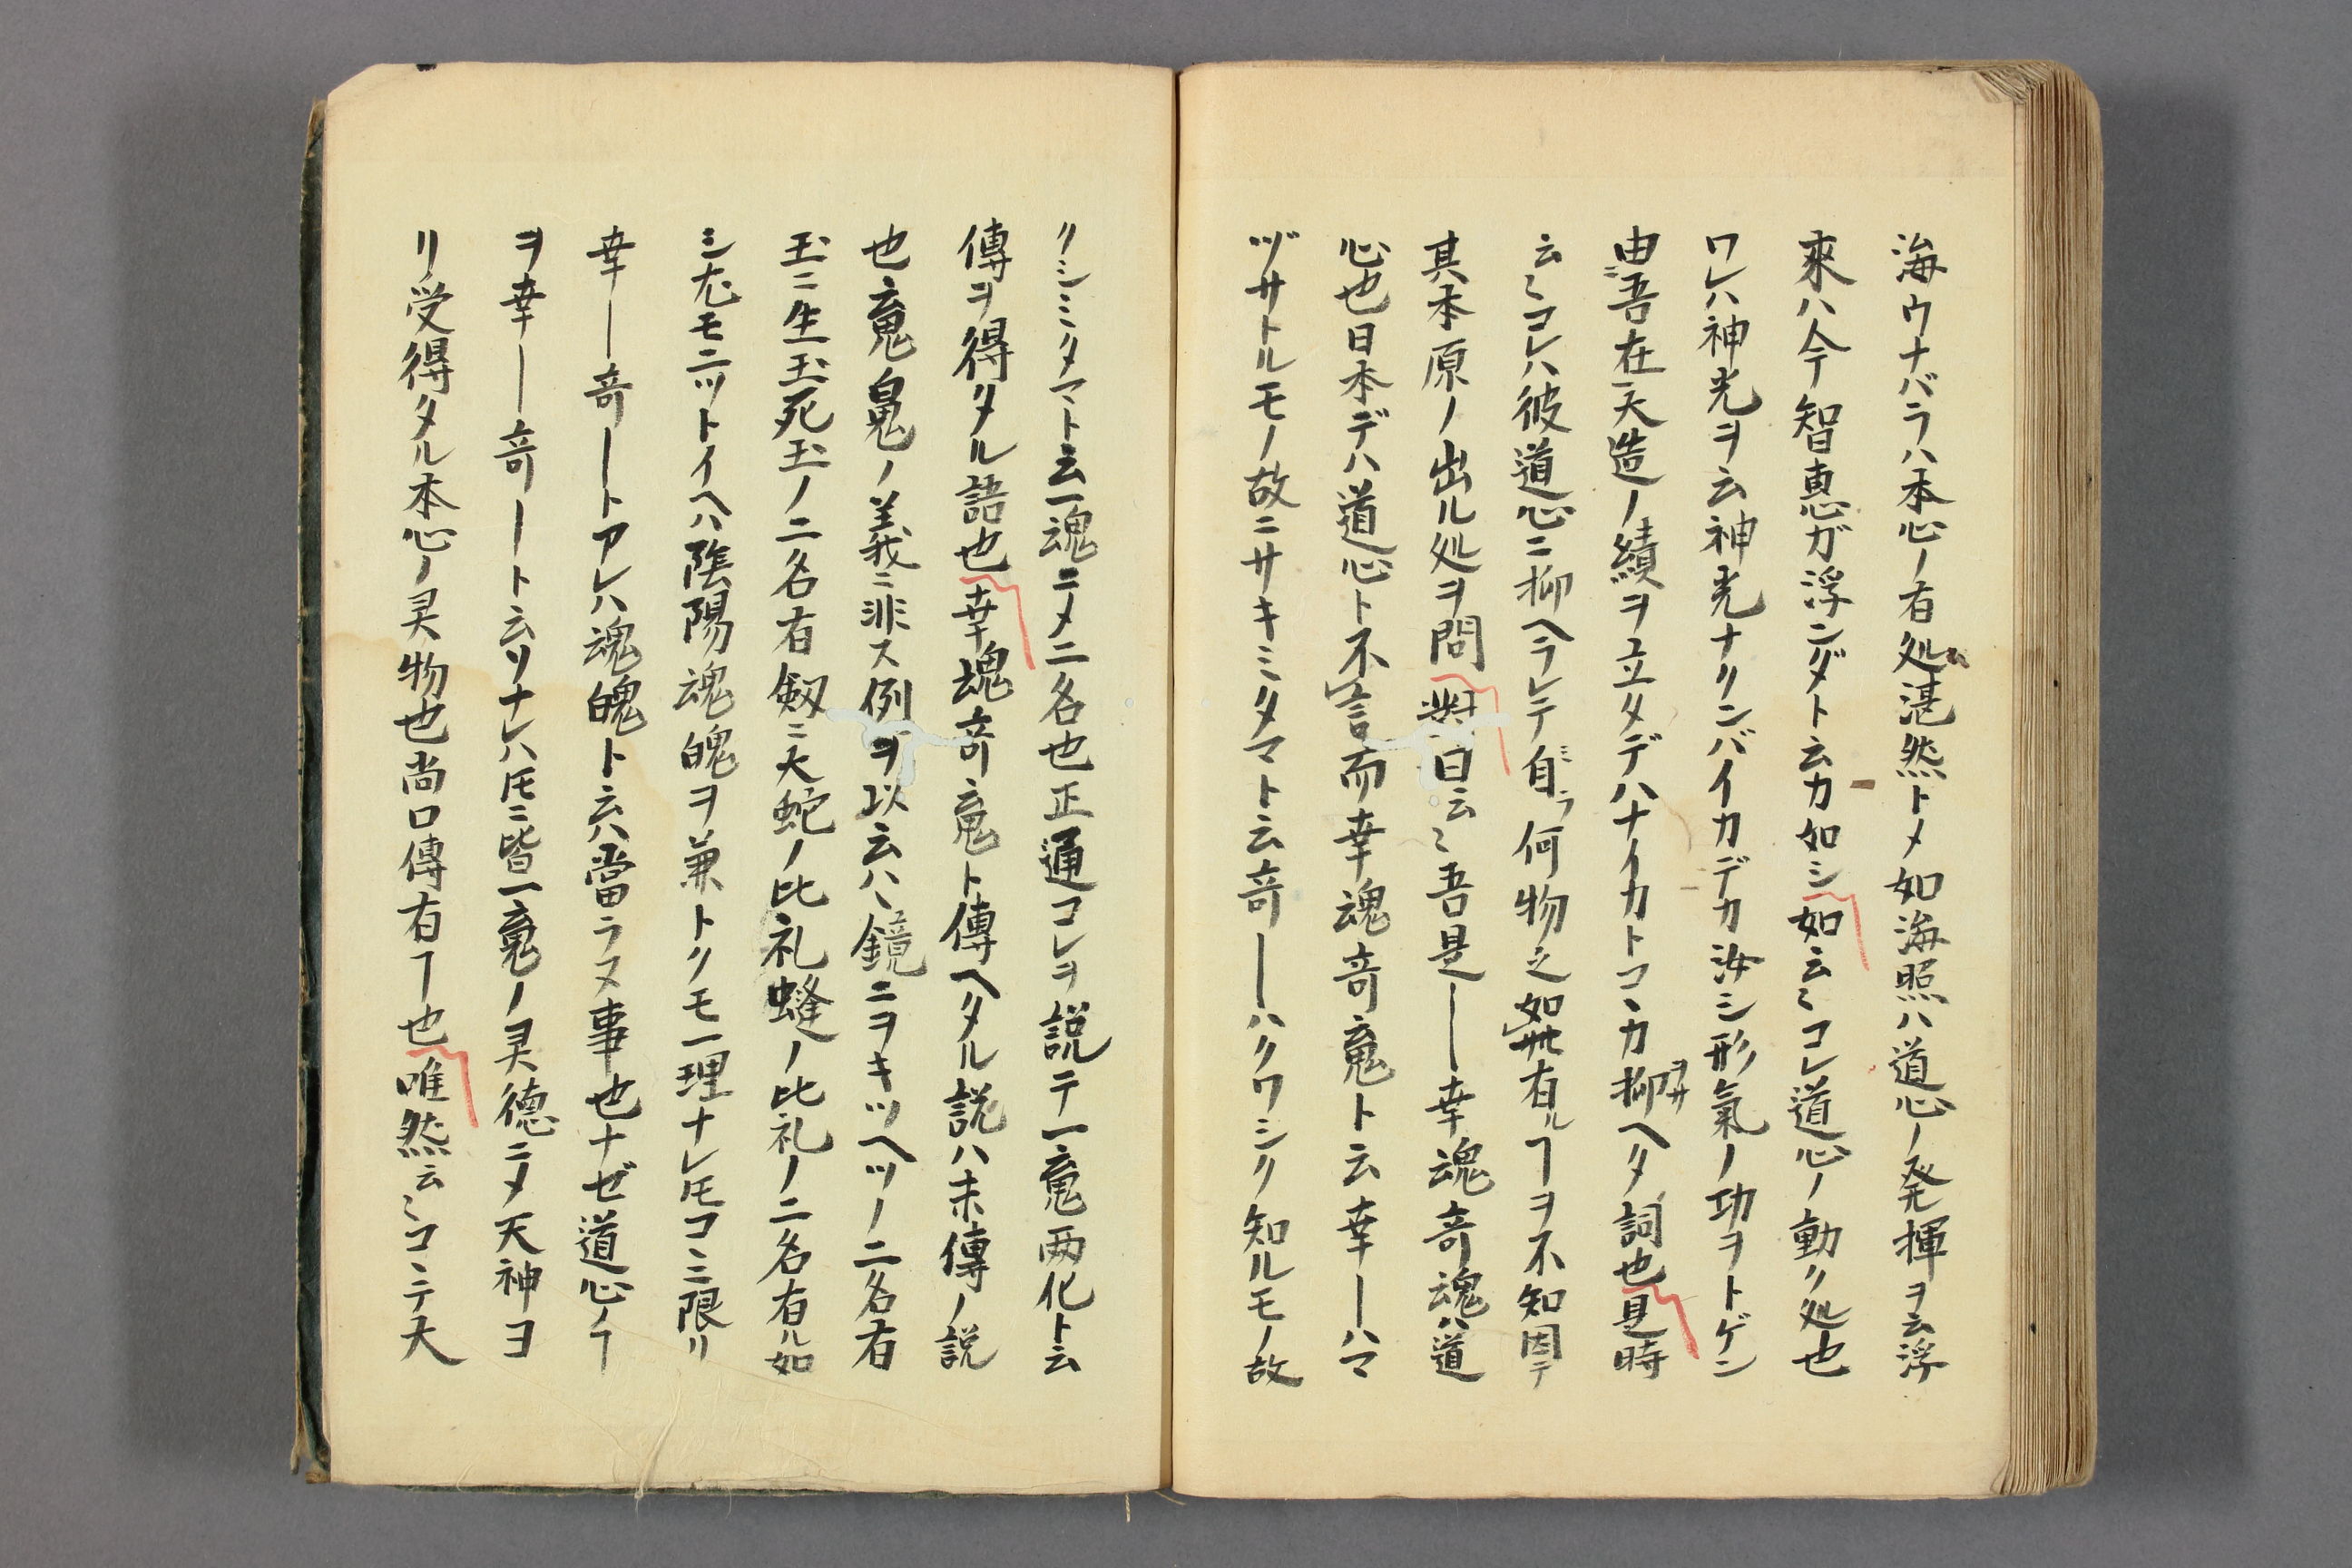 海ウナバラハ本心ノ有処湛然トメ如海照ハ道心ノ発揮ヲ云浮
來ハ今智恵ガ浮ンダト云カ如シ如云〻コレ道心ノ動ク処也
ワレハ神光ヲ云神光ナクンバイカデカ汝シ形氣ノ功ヲトゲン
由吾在大造ノ績ヲ立タデハナイカトコヽカ抑ヘタ詞也是時
云〻コレハ彼道心ニ抑ヘラレテ自ラ何物之如此有ルヿヲ不知因テ
其本原ノ出ル処ヲ問對曰云〻吾是―幸魂奇魂ハ道
心也日本デハ道心ト不言而幸魂奇䰟ト云幸―ハマ
ヅサトルモノ故ニサキミタマト云奇―ハクワシク知ルモノ故
クシミタマト云一魂ニメ二名也正通コレヲ説テ一䰟両化ト云
傳ヲ得タル語也幸塊奇䰟ト傳ヘタル説ハ未傳ノ説
也䰟㿜ノ義ニ非ス例ヲ以云ハヽ鏡ニヲキツヘツノ二名有
玉ニ生玉死玉ノ二名有劔ニ大蛇ノ比礼蜂ノ比礼ノ二名有ル如
シ尤モ二ツトイヘハ陰陽魂魄ヲ兼トクモ一理ナレ𪜈コヽニ限リ
幸―奇―トアレハ魂魄ト云ハ當ラヌ事也ナゼ道心ノヿ
ヲ幸―奇―ト云ソナレハ𪜈ニ皆一䰟ノ灵德ニメ天神ヨ
リ受得タル本心ノ灵物也尚口傳有ヿ也唯然云〻コヽテ大